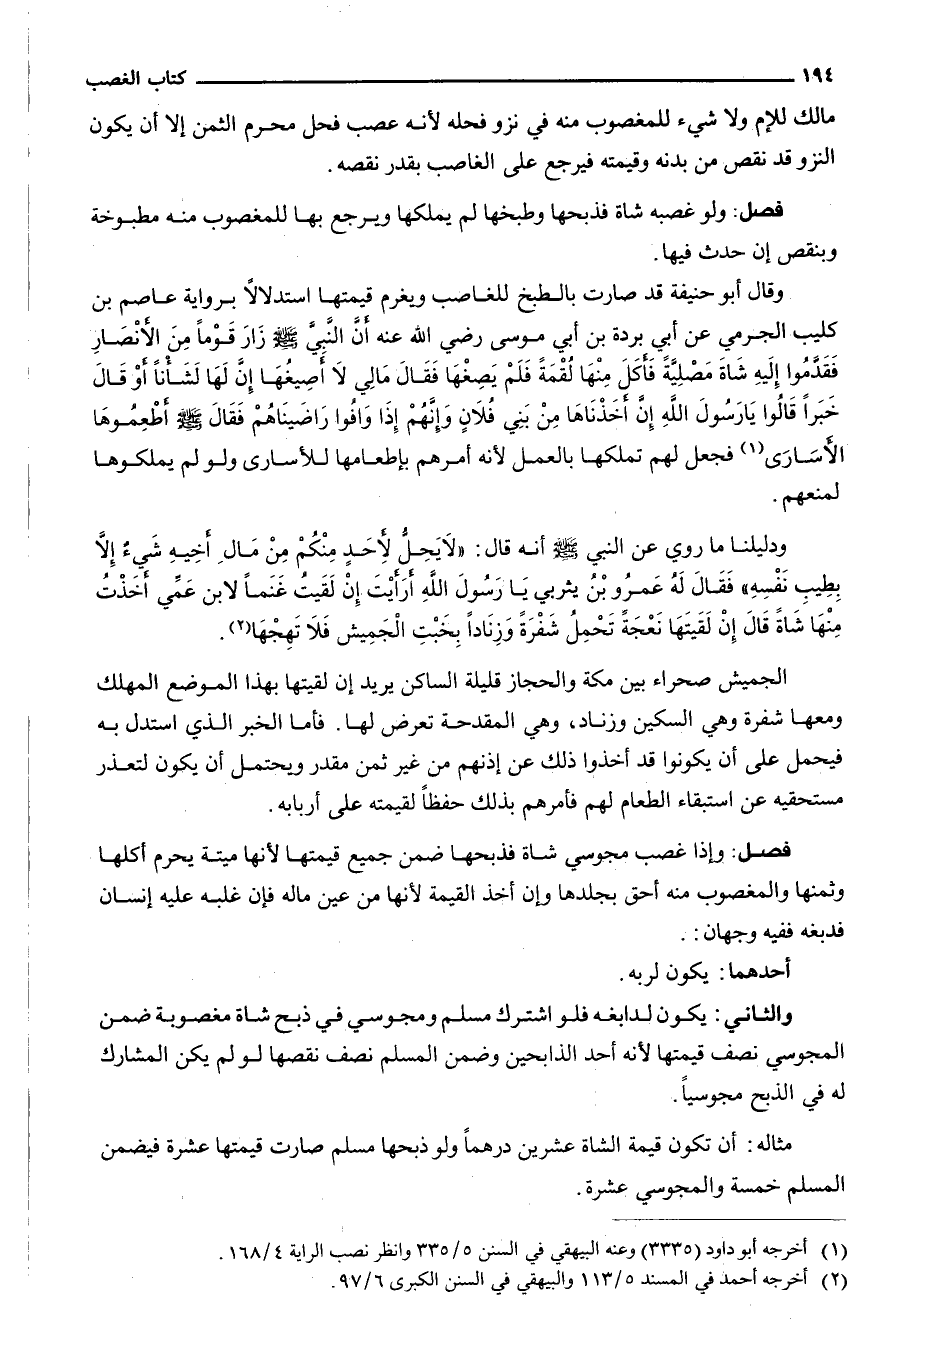 ١٩٤ ــــــــــــــــــــــــــــــــــــــــ كتاب الغصب
مالك للإم ولا شيء للمغصوب منه في نزو فحله لأنه عصب فحل محرم الثمن إلا أن يكون
النزو قد نقص من بدنه وقيمته فيرجع على الغاصب بقدر نقصه.
فصل: ولو غصبه شاة فذبحها وطبخها لم يملكها ويرجع بها للمغصوب منه مطبوخة
وبنقص إن حدث فيها.
وقال أبو حنيفة قد صارت بالطبخ للغاصب ويغرم قيمتها استدلالاً برواية عاصم بن
كليب الجرمي عن أبي بردة بن أبي موسى رضي الله عنه أَنَّ النَّبِيَّ ﷺ زَارَ قَوْماً مِنَ الأَنْصَارِ
فَقَدَّمُوا إِلَيهِ شَاةً مَصْلِيَّةً فَأَكَلَ مِنْهَا لُقْمَةً فَلَمْ يَصِغْهَا فَقَالَ مَالِي لَا أَصِيغُهَا إِنَّ لَهَا لَشَأْناً أَوْ قَالَ
خَبَراً قَالُوا يَارَسُولَ اللَّهِ إِنَّ أَخَذْنَاهَا مِنْ بَنِي فُلَانٍ وَإِنَّهُمْ إِذَا وَافُوا رَاضَيْنَاهُمْ فَقَالَ ﷺ أَطْعِمُوهَا
الأَسَارَى(١) فجعل لهم تملكها بالعمل لأنه أمرهم بإطعامها للأسارى ولو لم يملكوها
لمنعهم.
ودليلنا ما روي عن النبي ﷺ أنه قال: «لَا يَحِلُّ لِأَحَدٍ مِنْكُمْ مِنْ مَالِ أَخِيهِ شَيءٌ إِلَّا
بِطِيبِ نَفْسِهِ» فَقَالَ لَهُ عَمرُو بْنُ يثربي يَا رَسُولَ اللَّهِ أَرَأَيْتَ إِنْ لَقَيتُ غَنَماً لابنِ عَمِّي أَخَذْتُ
مِنْهَا شَاةً قَالَ إِنْ لَقَيتَهَا نَعْجَةً تَحْمِلُ شَفْرَةً وَزِنَاداً بِخَبْتِ الْجَمِيشِ فَلَا تَهِجْهَا(٢).
الجميش صحراء بين مكة والحجاز قليلة الساكن يريد إن لقيتها بهذا الموضع المهلك
ومعها شفرة وهي السكين وزناد، وهي المقدحة تعرض لها. فأما الخبر الذي استدل به
فيحمل على أن يكونوا قد أخذوا ذلك عن إذنهم من غير ثمن مقدر ويحتمل أن يكون لتعذر
مستحقيه عن استبقاء الطعام لهم فأمرهم بذلك حفظاً لقيمته على أربابه.
فصل: وإذا غصب مجوسي شاة فذبحها ضمن جميع قيمتها لأنها ميتة يحرم أكلها
وثمنها والمغصوب منه أحق بجلدها وإن أخذ القيمة لأنها من عين ماله فإن غلبه عليه إنسان
فدبغه ففيه وجهان: .
أحدهما: يكون لربه.
والثاني: يكون لدابغه فلو اشترك مسلم ومجوسي في ذبح شاة مغصوبة ضمن
المجوسي نصف قيمتها لأنه أحد الذابحين وضمن المسلم نصف نقصها لو لم يكن المشارك
له في الذبح مجوسياً.
مثاله: أن تكون قيمة الشاة عشرين درهماً ولو ذبحها مسلم صارت قيمتها عشرة فيضمن
المسلم خمسة والمجوسي عشرة.
(١) أخرجه أبو داود (٣٣٣٥) وعنه البيهقي في السنن ٣٣٥/٥ وانظر نصب الراية ١٦٨/٤.
(٢) أخرجه أحمد في المسند ١١٣/٥ والبيهقي في السنن الكبرى ٩٧/٦.